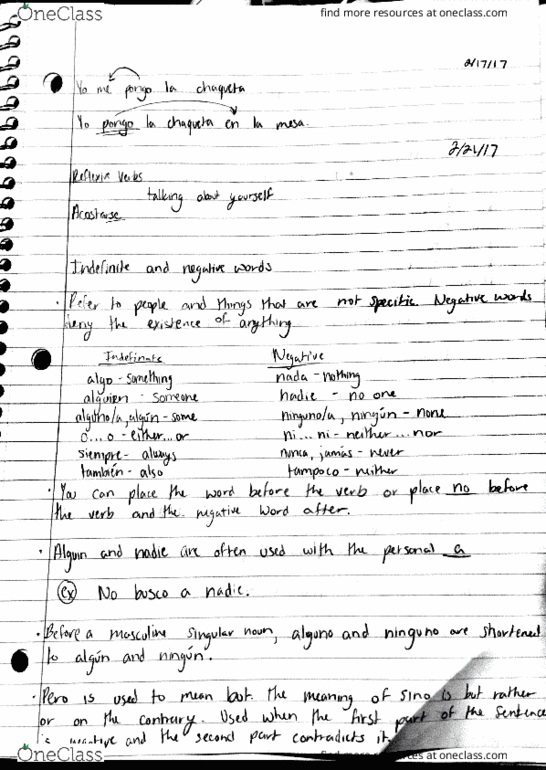 OneClass
find more resources at oneclass.com
2/17/17
Yo me pongo la chaqueta
Yo pongo la chaqueta en la mesa.
2/21/17
Reflexiv Verbs
talking about yourself
Acostarse
Indefinite and negative words
· Refer to people and things that are not specific. Negative words
deny the existence of anything
Indefinate Negative
algo - something nada - nothing
alguien - someone nadie - no one
alguno/a, algún - some ninguno/a, ningún - none
o...o - either...or ni...ni - neither...nor
siempre - always nunca, jamás - never
también - also tampoco - neither
· You can place the word before the verb or place no before
the verb and the negative word after.
· Alguin and nadie are often used with the personal a
ex No busco a nadie.
· Before a masculine singular noun, alguno and ninguno are shortened
to algún and ningún.
· Pero is used to mean but. the meaning of sino is but rather
or on the contrary. Used when the first part of the sentence
is negative and the second part contradicts it
OneClass
find more resources at oneclass.com